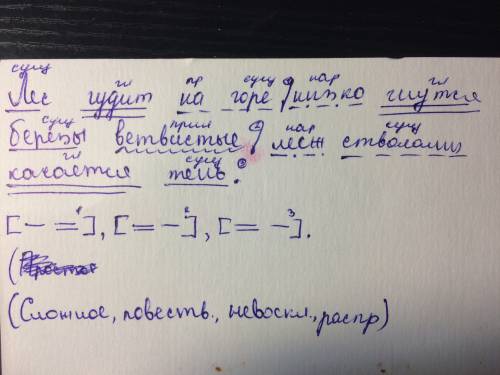 сущ гл пр сущ нар гл
Лес гудит на горе, низко гнутся
сущ прил нар сущ
берёзы ветвистые, меж стволами
гл сущ
качается тень.
[— =¹], [= —²], [= —³].
(
(Сложное, повеств., невоскл., распр)